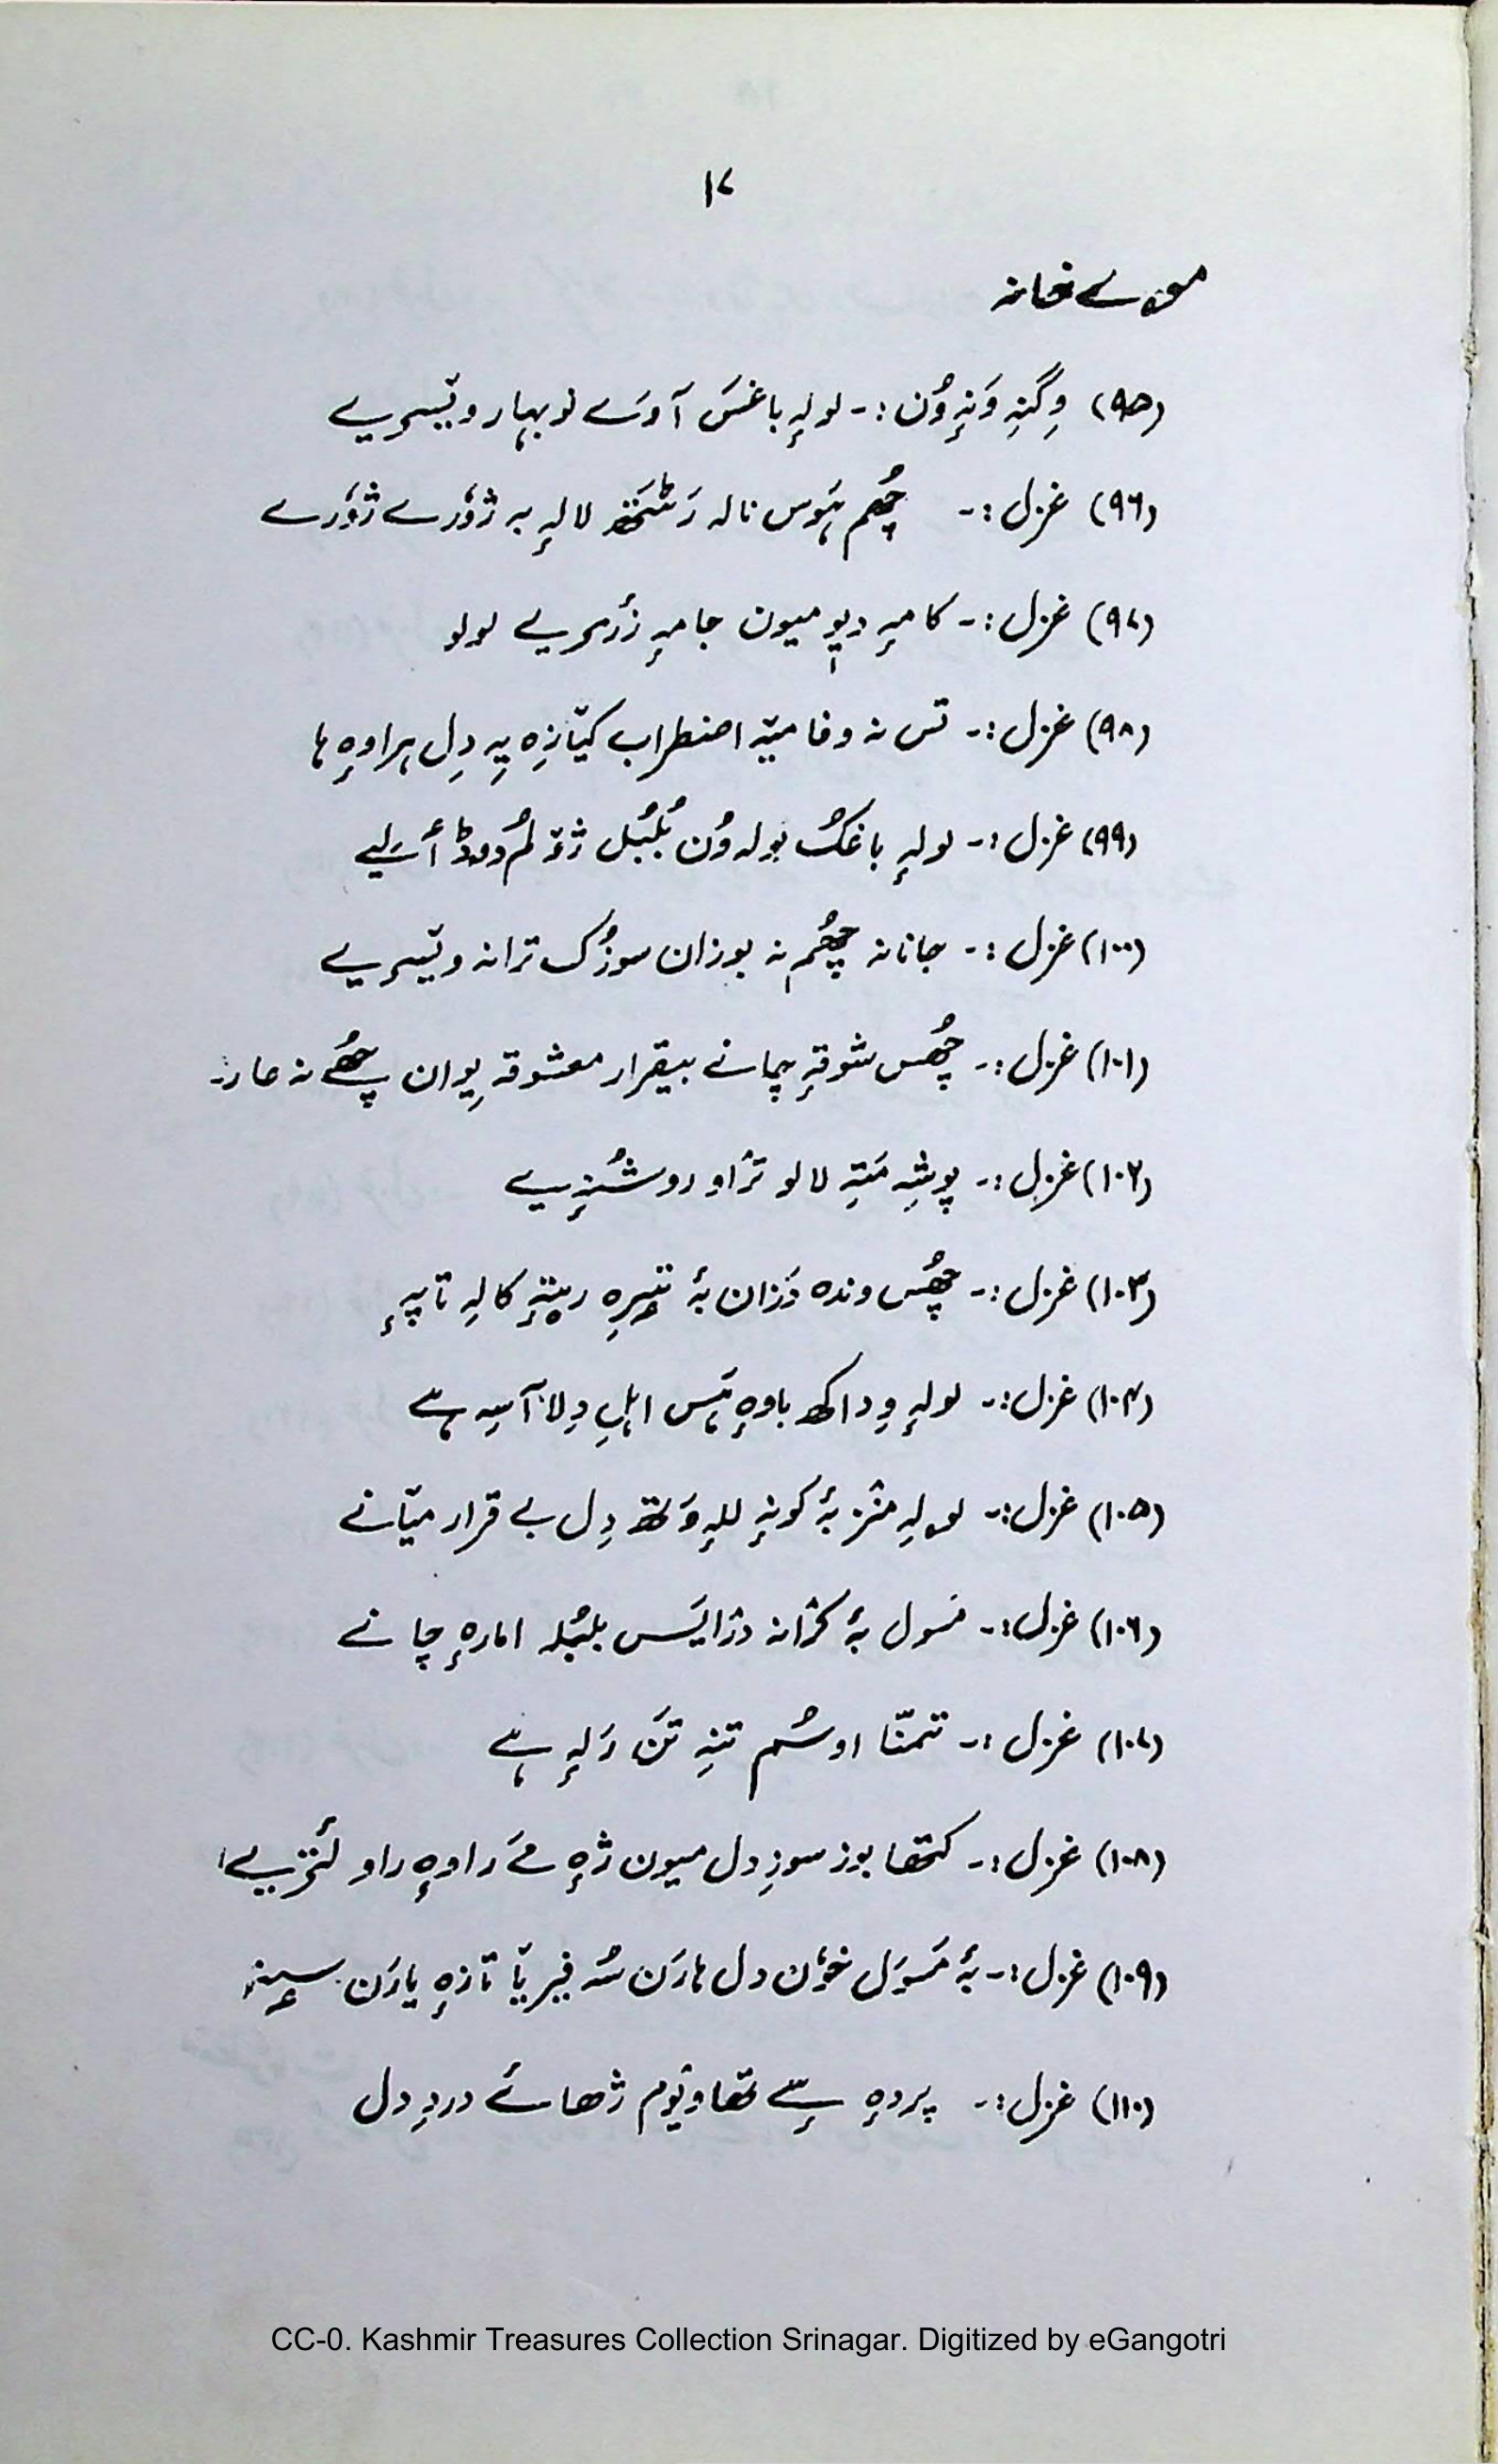 ۱۷
مۄے خانہ
(۹۵) وِگنہِ وَنہٕ وُن :۔ لولہٕ باغسَ آوسَے نوبہار ویٚسریے
(۹۶) غزل :۔ چھُم ہَوس نالہ رَٹَتھ لالہٕ بہ ژوٗرے ژوٗرے
(۹۷) غزل :۔ کامہِ دیوٕ میون جامہٕ زرٔریے لولو
(۹۸) غزل :۔ تس نہ وفا میٚہ اضطراب کیٚازِہ یہِ دِل ہراوہٕ ہا
(۹۹) غزل :۔ لولہٕ باغکُ بولہ وُن بُلبُل ژٕۃ
(۱۰۰) غزل :۔ جانانہ چھُم نہ بوزان سوزُک ترانہ ویٚسریے
(۱۰۱) غزل :۔ چھُس شوقہٕ چانے بیقرار معشوقہ یِوان چھُے نہ عار۔
(۱۰۲) غزل :۔ پوشہِ مَتہِ لالو ترٛاو روشُنہٕ یے
(۱۰۳) غزل :۔ چھُس وندہ دَزان بۂ تیٖرِہ ریٖتہٕ کالہِ تاپہٕ
(۱۰۴) غزل :۔ لولہٕ وِداکھ باوہٕ ہَس اہلِ دِلا آسہِ ہے
(۱۰۵) غزل :۔ لولہِ منٛز بۂ کونہٕ للہٕ وَتھ دِل بے قرار میٚانے
(۱۰۶) غزل :۔ مَسول بۂ کرٛانہ درٛایَس بلبُلہ امارہٕ چانے
(۱۰۷) غزل :۔ تمنّا اوسُم تنہِ تَن رَلہٕ ہے
(۱۰۸) غزل :۔ کتھا بوز سوزِ دل میون ژہٕ مےَ راوہٕ راو لٔنزیے
(۱۰۹) غزل :۔ بۂ مَسوَل خوٗن دل ہارَن سُہ فیریٚا تازہٕ یارَن سیٖتۍ
(۱۱۰) غزل :۔ پردہٕ سٕے تھاوتوٗم ژھائے دردِ دل
CC-0. Kashmir Treasures Collection Srinagar. Digitized by eGangotri